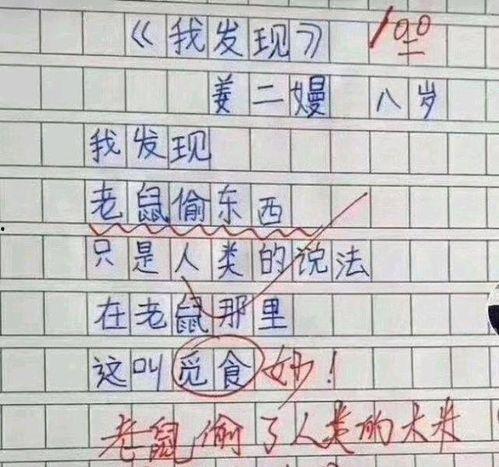 《我发现》 100
姜二嫚 八岁
我发现
老鼠偷东西
只是人类的说法
在老鼠那里
这叫觅食 妙！
老鼠偷了人类的大米